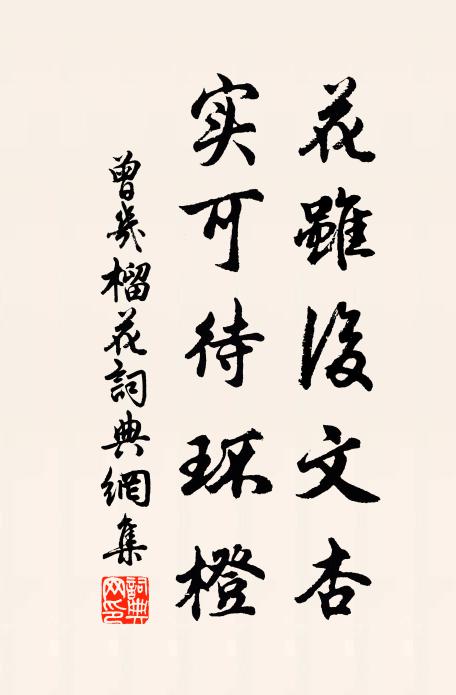 花雖後文杏
实可待珎橙
曾幾榴花詞典網集
詞典网印